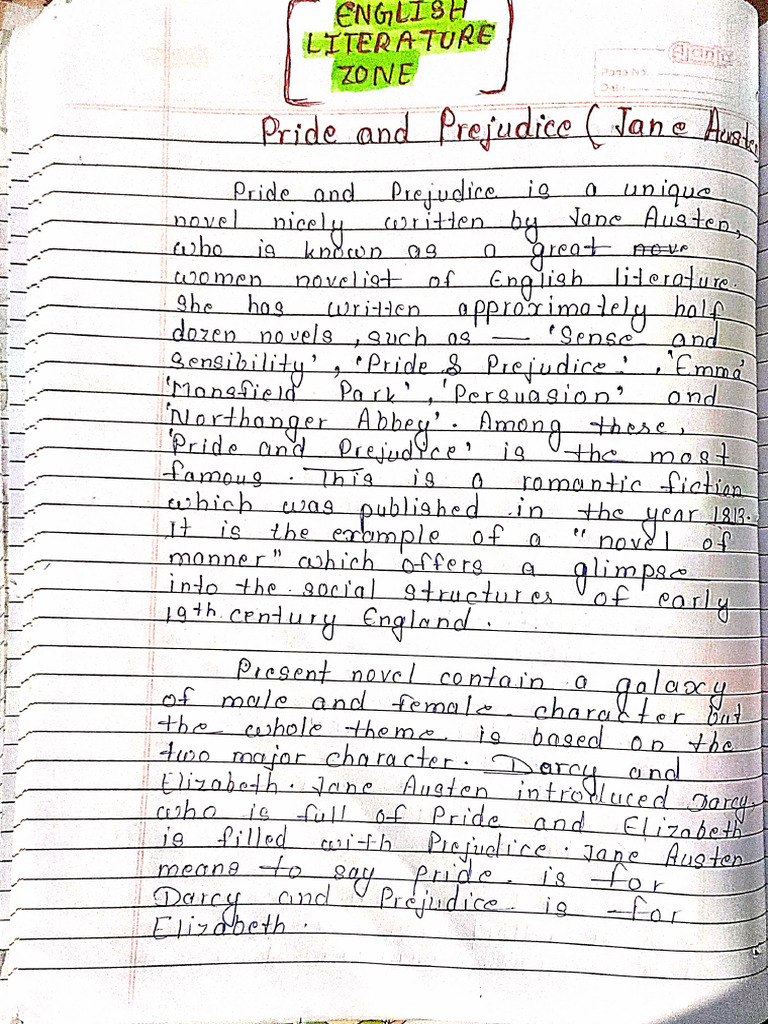 ENGLISH
LITERATURE
ZONE
Ajanta
Page No.
Date
Pride and Prejudice ( Jane Austen
Pride and Prejudice is a unique
novel nicely written by Jane Austen,
who is known as a great nove
women novelist of English literature.
She has written approximately half
dozen novels, such as — 'Sense and
Sensibility', 'Pride & Prejudice', 'Emma'
'Mansfield Park', 'Persuasion' and
'Northanger Abbey'. Among these,
'Pride and Prejudice' is the most
famous. This is a romantic fiction
which was published in the year 1813.
It is the example of a "novel of
manner" which offers a glimpse
into the social structures of early
19th century England.
Present novel contain a galaxy
of male and female character but
the whole theme is based on the
two major character. Darcy and
Elizabeth. Jane Austen introduced Darcy
who is full of Pride and Elizabeth
is filled with Prejudice. Jane Austen
means to say Pride is for
Darcy and Prejudice is for
Elizabeth.